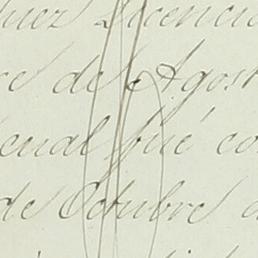 Juez Licencia
re de Agost
cual fué co
de Octubre d